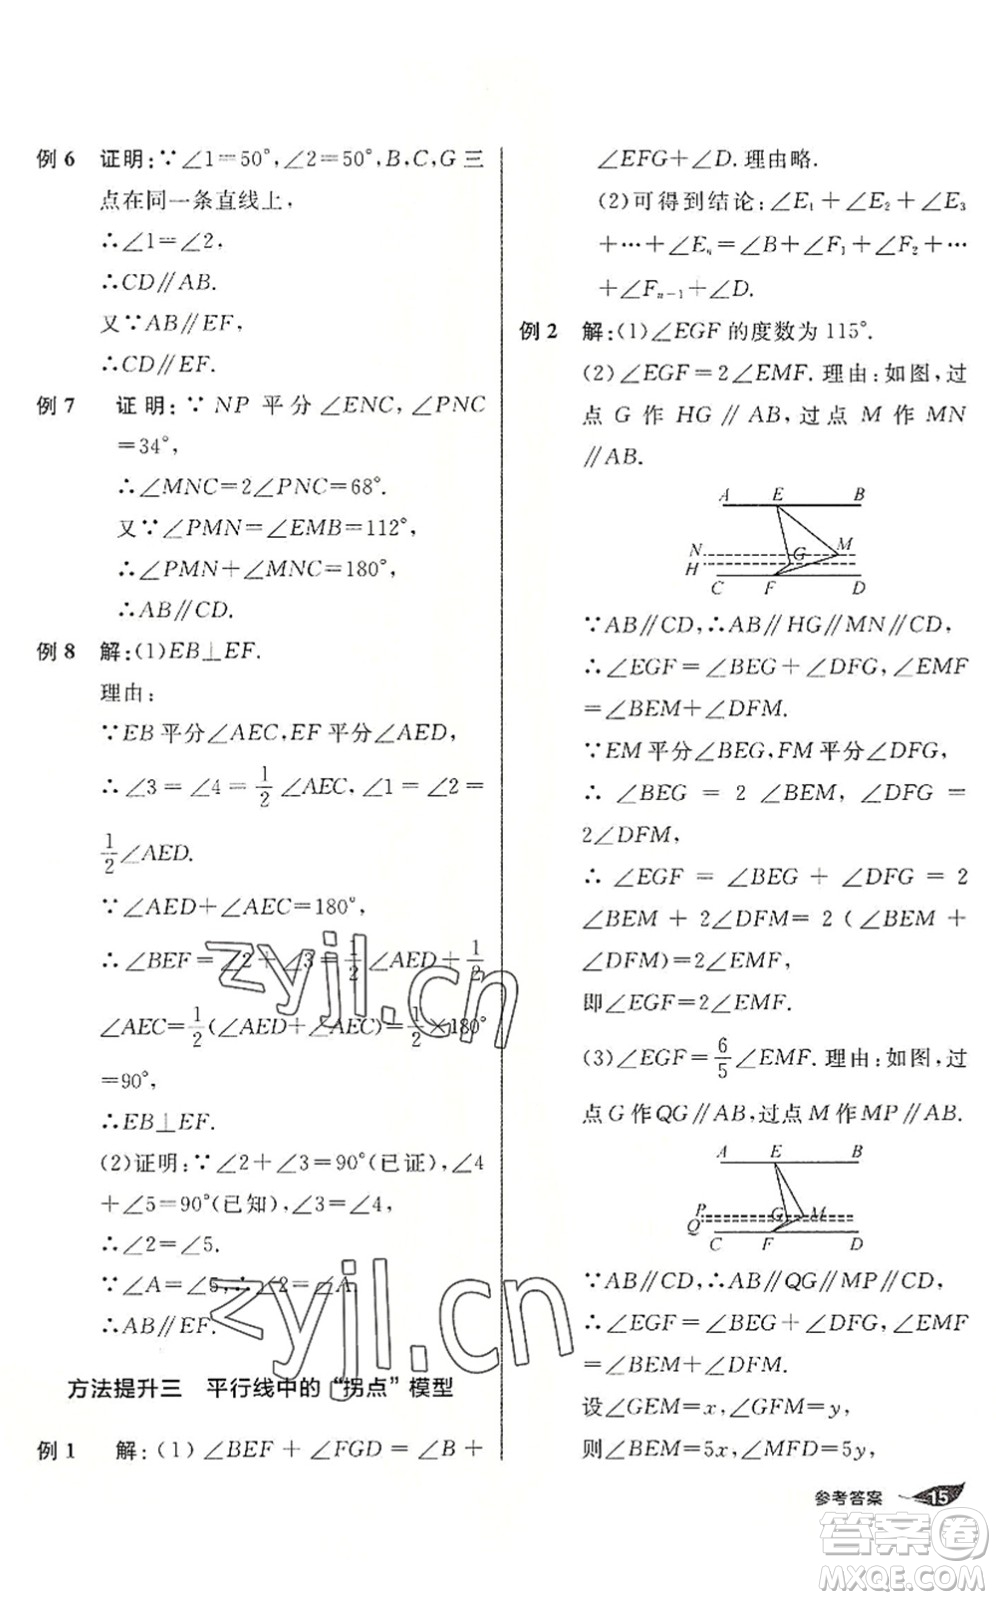 例6 证明:∵∠1=50°,∠2=50°,B,C,G三
点在同一条直线上,
∴∠1=∠2.
∴CD∥AB.
又∵AB∥EF,
∴CD∥EF.
例7 证明:∵NP 平分∠ENC,∠PNC
=34°,
∴∠MNC=2∠PNC=68°.
又∵∠PMN=∠EMB=112°,
∴∠PMN+∠MNC=180°,
∴AB∥CD.
例8 解:(1)EB⊥EF.
理由:
∵EB平分∠AEC,EF平分∠AED,
∴∠3=∠4=1/2∠AEC,∠1=∠2=
1/2∠AED.
∵∠AED+∠AEC=180°,
∴∠BEF=∠2+∠3=1/2∠AED+1/2
∠AEC=1/2(∠AED+∠AEC)=1/2×180°
=90°,
∴EB⊥EF.
(2)证明:∵∠2+∠3=90°(已证),∠4
+∠5=90°(已知),∠3=∠4,
∴∠2=∠5.
∵∠A=∠5,∴∠2=∠A,
∴AB∥EF.
方法提升三 平行线中的“拐点”模型
例1 解:(1)∠BEF+∠FGD=∠B+
∠EFG+∠D.理由略.
(2)可得到结论:∠E₁+∠E₂+∠E₃
+…+∠Eₙ=∠B+∠F₁+∠F₂+…
+∠Fₙ₋₁+∠D.
例2 解:(1)∠EGF的度数为115°.
(2)∠EGF=2∠EMF.理由:如图,过
点G作HG∥AB,过点M作MN
∥AB.
A E B
N G M
H
C F D
∵AB∥CD,∴AB∥HG∥MN∥CD,
∴∠EGF=∠BEG+∠DFG,∠EMF
=∠BEM+∠DFM.
∵EM平分∠BEG,FM平分∠DFG,
∴∠BEG=2∠BEM,∠DFG=
2∠DFM,
∴∠EGF=∠BEG+∠DFG=2
∠BEM+2∠DFM=2(∠BEM+
∠DFM)=2∠EMF,
即∠EGF=2∠EMF.
(3)∠EGF=6/5∠EMF.理由:如图,过
点G作QG∥AB,过点M作MP∥AB.
A E B
P G M
Q
C F D
∵AB∥CD,∴AB∥QG∥MP∥CD,
∴∠EGF=∠BEG+∠DFG,∠EMF
=∠BEM+∠DFM.
设∠GEM=x,∠MFG=y,
则∠BEM=5x,∠MFD=5y,
参考答案 15
zyjl.cn
zyjl.cn
答案圈
MXQE.COM